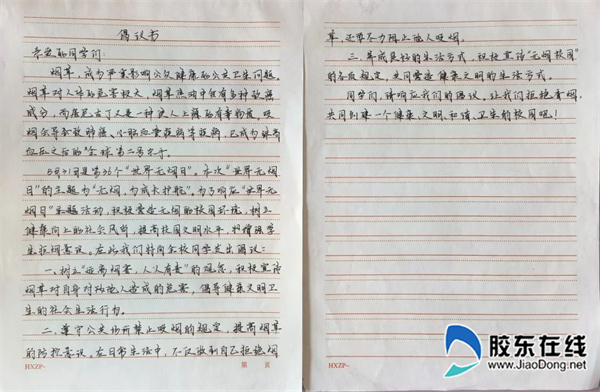 倡议书
亲爱的同学们:
烟草,成为严重影响公众健康的公共卫生问题。
烟草对人体的危害极大,烟草燃烟中含有多种致癌
成分,而尼古丁又是一种使人上瘾的有毒物质。吸
烟会导致肺癌、心脑血管疾病等疾病,已成为继高
血压之后的"全球第二号杀手。
5月31日是第36个"世界无烟日"。本次"世界无烟
日"的主题为"无烟,为成长护航",为了响应"世界无
烟日"主题活动,积极营造无烟的校园环境,树立
健康向上的社会风尚,提高校园文明水平,和增强学
生控烟意识。在此我们特向全校同学发出倡议:
一、树立"远离烟害,人人有责"的观念,积极宣传
烟草对自身对及他人造成的危害,倡导健康文明卫
生的社会生活行为。
二、遵守公共场所禁止吸烟的规定,提高烟草
的防控意识。在日常生活中,不仅做到自己拒绝烟
草,还要尽力阻止他人吸烟。
三、养成良好的生活方式,积极宣传"无烟校园"
的各项规定,共同营造健康文明的生活方式。
同学们,请响应我们的倡议。让我们拒绝香烟,
共同创建一个健康、文明、和谐、卫生的校园吧!
HXZP~
第 页
HXZP~
胶东在线
www.JiaoDong.net